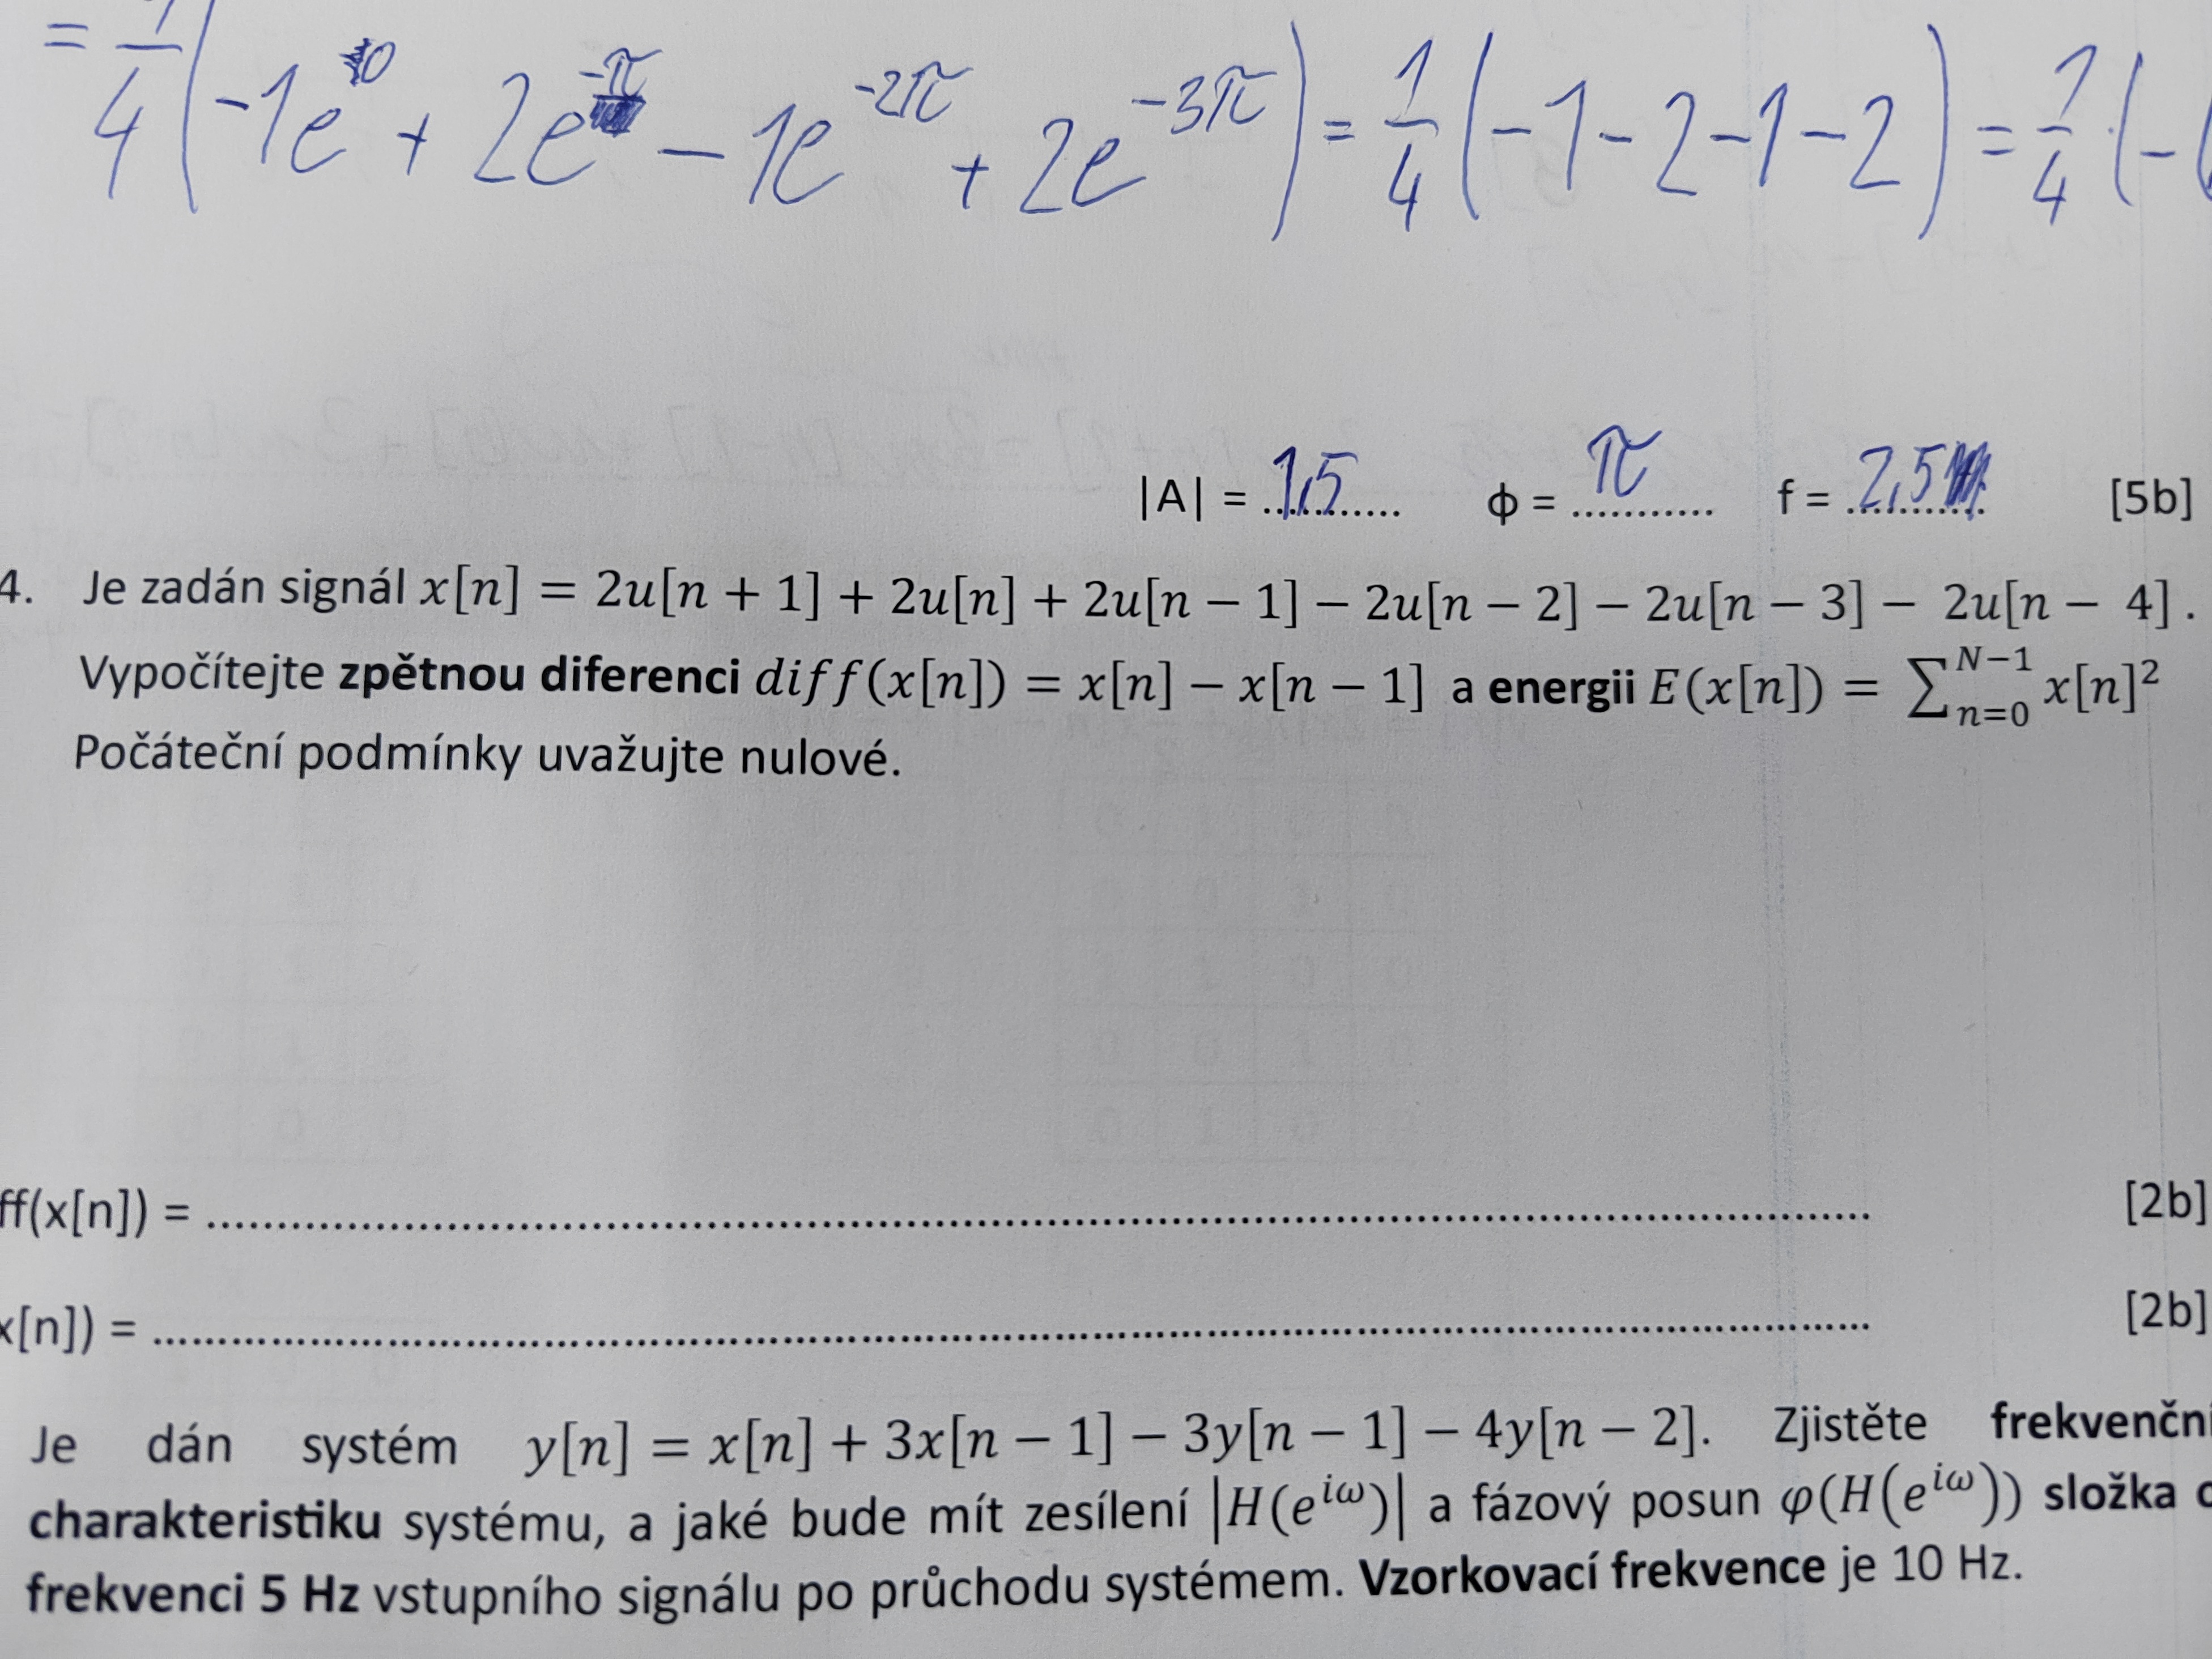 = 1/4 ( -1e^0 + 2e^{-π} - 1e^{-2π} + 2e^{-3π} ) = 1/4 ( -1 - 2 - 1 - 2 ) = 1/4 · ( -
|A| = 1,5 ϕ = π f = 2,5 [5b]
4. Je zadán signál x[n] = 2u[n + 1] + 2u[n] + 2u[n − 1] − 2u[n − 2] − 2u[n − 3] − 2u[n − 4] .
Vypočítejte zpětnou diferenci diff(x[n]) = x[n] − x[n − 1] a energii E(x[n]) = ∑_{n=0}^{N−1} x[n]²
Počáteční podmínky uvažujte nulové.
ff(x[n]) = ........................................................ [2b]
x[n]) = ........................................................ [2b]
Je dán systém y[n] = x[n] + 3x[n − 1] − 3y[n − 1] − 4y[n − 2]. Zjistěte frekvenční
charakteristiku systému, a jaké bude mít zesílení |H(e^{iω})| a fázový posun φ(H(e^{iω})) složka o
frekvenci 5 Hz vstupního signálu po průchodu systémem. Vzorkovací frekvence je 10 Hz.